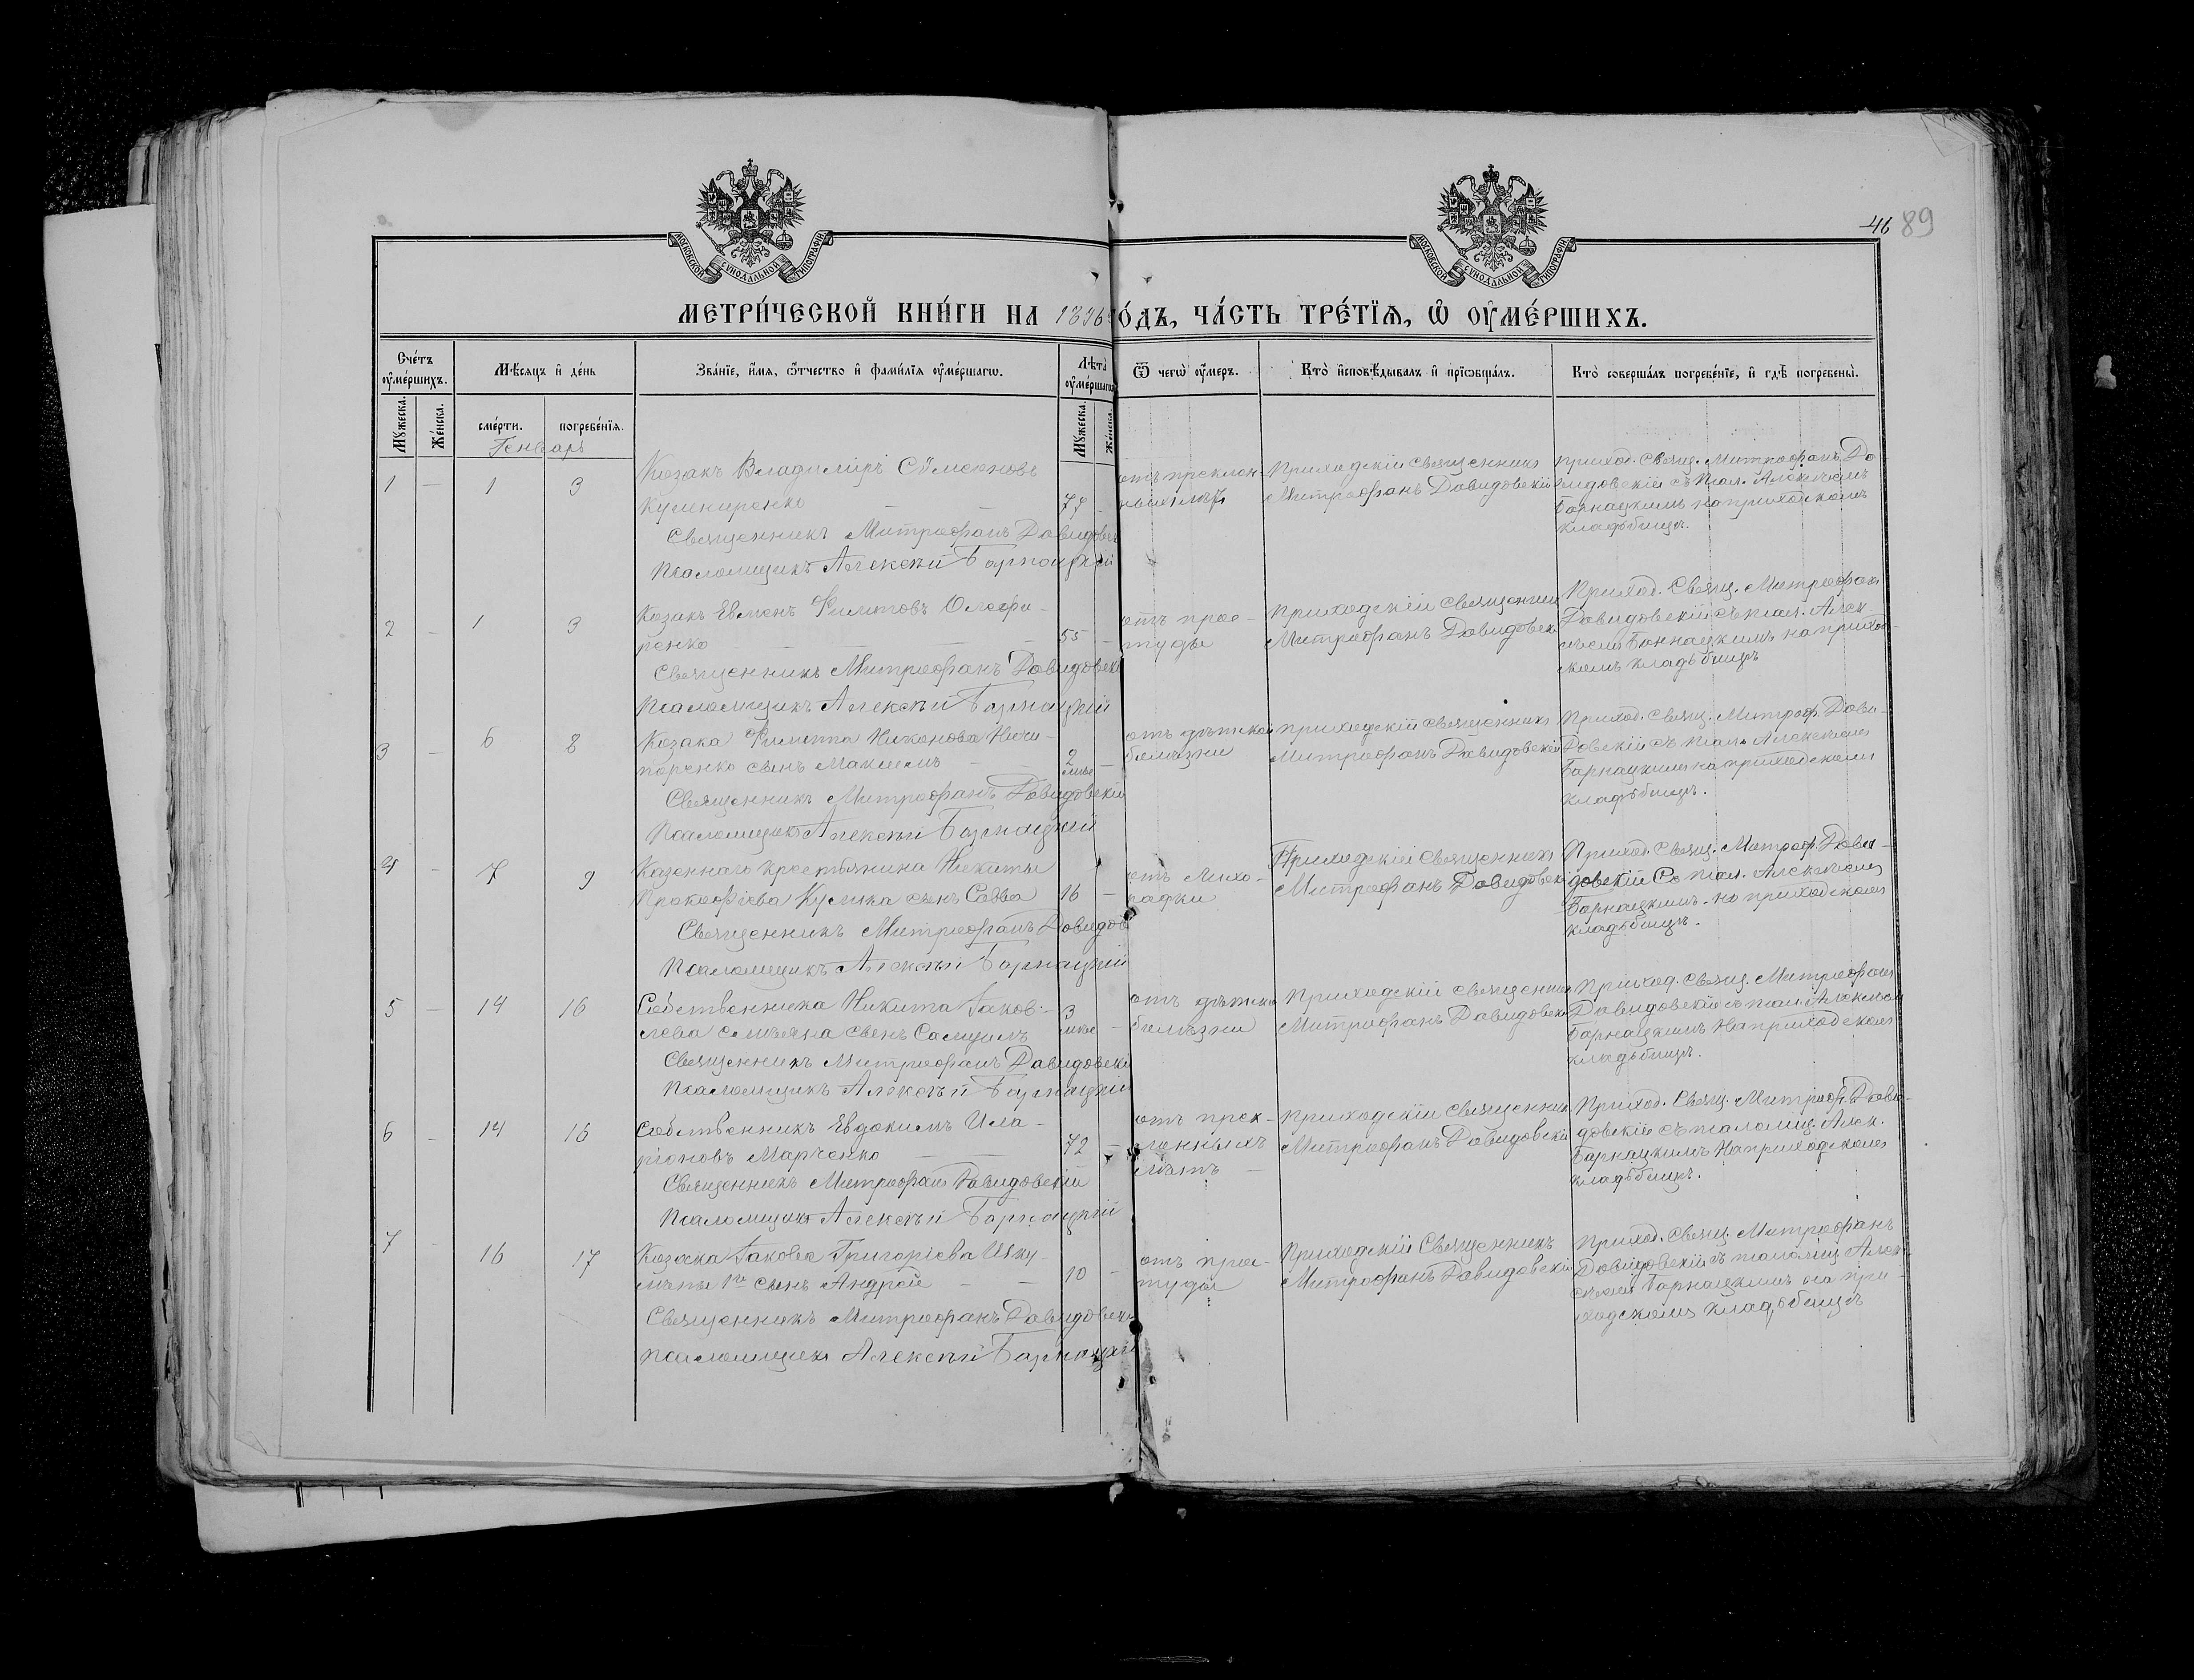 46 89
МОСКОВСКОЙ СѴНОДАЛЬНОЙ ТИПОГРАФІИ
МОСКОВСКОЙ СѴНОДАЛЬНОЙ ТИПОГРАФІИ
МЕТРИ́ЧЕСКОЙ КНИ́ГИ НА 1896 ГО́ДЪ, ЧА́СТЬ ТРЕ́ТІѦ, Ѡ ОУМЕ́РШИХЪ.
Сче́тъ оуме́ршихъ.
Мѣ́сяцъ и де́нь
Зва́нїе, и́мя, ѻ҆́тчество и фами́лїя оуме́ршагѡ.
Лѣта̀ оуме́ршагѡ
Ѿ чегѡ̀ оу́меръ.
Кто̀ и҆сповѣ́дывалъ и҆ прїѡбща́лъ.
Кто̀ соверша́лъ погребе́нїе, и҆ гдѣ̀ погребены̀.
Му́жеска. Же́нска. сме́рти. погребе́нїя. Му́жеска. Же́нска.
Генварь
1 — 1 3
Козакъ Владиміръ Сѵмеоновъ
Кушниренко — — 77 —
Священникъ Митрофанъ Давидовск
Псаломщикъ Алексѣй Барнацкій
отъ преклон-
ныхъ лѣтъ
Приходскій священникъ
Митрофанъ Давидовскій
Приход. Свящ. Митрофанъ Да
видовскій съ псал. Алексѣемъ
Барнацкимъ на приходскомъ
кладбищѣ.
2 — 1 3
Козакъ Евменъ Филиповъ Олефи-
ренко — — — 55 —
Священникъ Митрофанъ Давидовскі
Псаломщикъ Алексѣй Барнацкій
отъ прос-
туды
Приходскій священник
Митрофанъ Давидовск
Приход. Свящ. Митрофан
Давидовскій съ псал. Алек-
сѣемъ Барнацкимъ на прихо-
скомъ кладбищѣ
3 — 6 8
Козака Филиппа Никонова Ничи-
поренко сынъ Максимъ — — 2 —
Священникъ Митрофанъ Давидовскій
Псаломщикъ Алексѣй Барнацкій
отъ дѣтской
болѣзни
Приходскій священникъ
Митрофанъ Давидовскій
Приход. свящ. Митроф. Дави-
довскій съ псал. Алексѣемъ
Барнацкимъ на приходскомъ
кладбищѣ.
4 — 7 9
Казеннаго крестьянина Никиты
Прокофіева Кулика сынъ Савва 16 —
Священникъ Митрофанъ Давидов
Псаломщикъ Алексѣй Барнацкій
отъ лихо-
радки
Приходскій священникъ
Митрофанъ Давидовскі
Приход. Свящ. Митроф. Дави-
довскій съ псал. Алексѣемъ
Барнацкимъ на приходскомъ
кладбищѣ.
5 — 14 16
Собственника Никита Іаков-
лева сынъ Самуилъ 3 —
Священникъ Митрофанъ Давидовскі
Псаломщикъ Алексѣй Барнацкій
отъ дѣтско
болѣзни
Приходскій священник
Митрофанъ Давидовскі
Приход. Свящ. Митрофанъ
Давидовскій съ псал. Алексѣем
Барнацкимъ на приходскомъ
кладбищѣ.
6 — 14 15
Собственникъ Евдокимъ Ила-
ріоновъ Марченко — — 72 —
Священникъ Митрофанъ Давидовскій
Псаломщикъ Алексѣй Барнацкій
отъ прек-
лонныхъ
лѣтъ —
Приходскій священник
Митрофанъ Давидовскі
Приход. Свящ. Митроф. Дави-
довскій съ псаломщ. Алек.
Барнацкимъ на приходскомъ
кладбищѣ.
7 — 16 17
Козака Іакова Григоріева
сынъ Андрей — — 10 —
Священникъ Митрофанъ Давидовскі
Псаломщикъ Алексѣй Барнацкій
отъ прос-
туды
Приходскій Священникъ
Митрофанъ Давидовскій
Приход. Свящ. Митрофанъ
Давидовскій съ псаломщ. Алек-
сѣемъ Барнацкимъ на при-
ходскомъ кладбищѣ